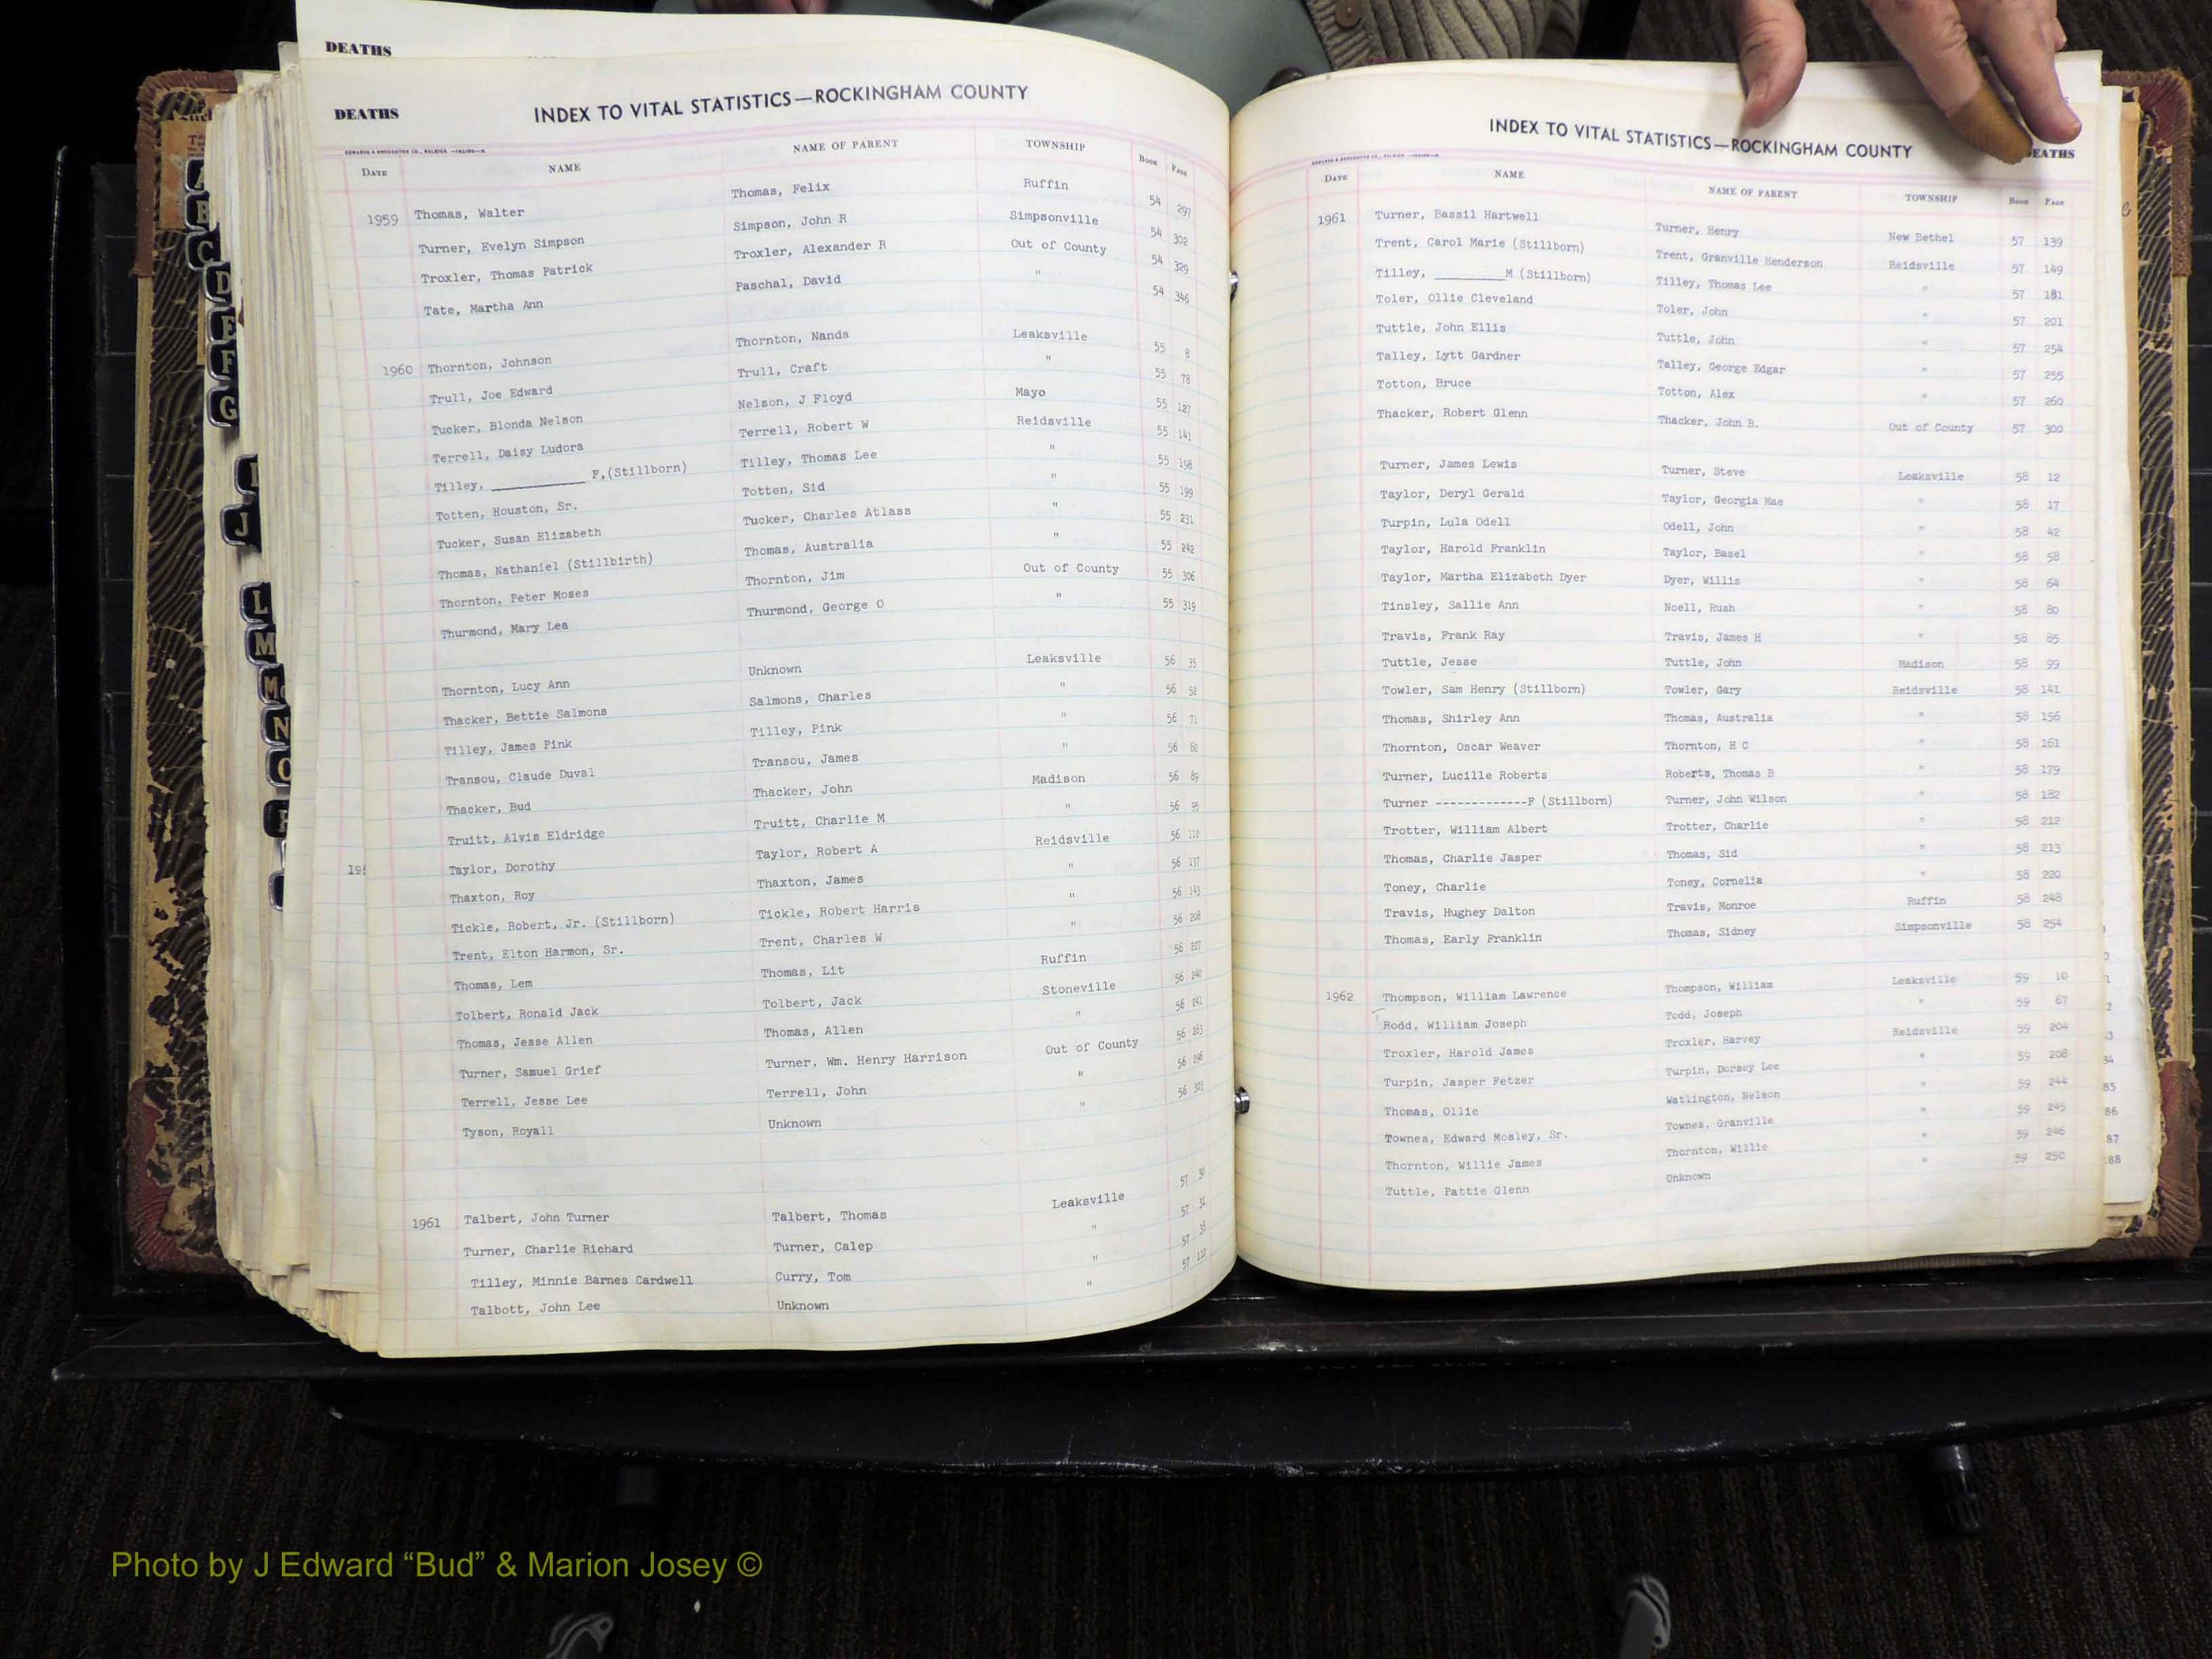 DEATHS
DEATHS
INDEX TO VITAL STATISTICS—ROCKINGHAM COUNTY
DATE NAME NAME OF PARENT TOWNSHIP BOOK PAGE
1959 Thomas, Walter Thomas, Felix Ruffin 54 297
Turner, Evelyn Simpson Simpson, John R Simpsonville 54 302
Troxler, Thomas Patrick Troxler, Alexander R Out of County 54 329
Tate, Martha Ann Paschal, David " 54 346
1960 Thornton, Johnson Thornton, Nanda Leaksville 55 8
Trull, Joe Edward Trull, Craft " 55 78
Tucker, Blonda Nelson Nelson, J Floyd Mayo 55 127
Terrell, Daisy Ludora Terrell, Robert W Reidsville 55 141
Tilley, __________ F,(Stillborn) Tilley, Thomas Lee " 55 158
Totten, Houston, Sr. Totten, Sid " 55 199
Tucker, Susan Elizabeth Tucker, Charles Atlass " 55 231
Thomas, Nathaniel (Stillbirth) Thomas, Australia " 55 242
Thornton, Peter Moses Thornton, Jim Out of County 55 306
Thurmond, Mary Lea Thurmond, George O " 55 319
Thornton, Lucy Ann Unknown Leaksville 56 35
Thacker, Bettie Salmons Salmons, Charles " 56 52
Tilley, James Pink Tilley, Pink " 56 71
Transou, Claude Duval Transou, James " 56 80
Thacker, Bud Thacker, John Madison 56 89
Truitt, Alvis Eldridge Truitt, Charlie M " 56 95
195 Taylor, Dorothy Taylor, Robert A Reidsville 56 110
Thaxton, Roy Thaxton, James " 56 137
Tickle, Robert, Jr. (Stillborn) Tickle, Robert Harris " 56 143
Trent, Elton Harmon, Sr. Trent, Charles W " 56 208
Thomas, Lem Thomas, Lit Ruffin 56 227
Tolbert, Ronald Jack Tolbert, Jack Stoneville 56 240
Thomas, Jesse Allen Thomas, Allen " 56 241
Turner, Samuel Grief Turner, Wm. Henry Harrison Out of County 56 283
Terrell, Jesse Lee Terrell, John " 56 296
Tyson, Royall Unknown " 56 303
1961 Talbert, John Turner Talbert, Thomas Leaksville 57 30
Turner, Charlie Richard Turner, Calep " 57 31
Tilley, Minnie Barnes Cardwell Curry, Tom " 57 38
Talbott, John Lee Unknown " 57 110
INDEX TO VITAL STATISTICS—ROCKINGHAM COUNTY
DEATHS
DATE NAME NAME OF PARENT TOWNSHIP BOOK PAGE
1961 Turner, Bassil Hartwell Turner, Henry New Bethel 57 139
Trent, Carol Marie (Stillborn) Trent, Granville Henderson Reidsville 57 149
Tilley, ________M (Stillborn) Tilley, Thomas Lee " 57 181
Toler, Ollie Cleveland Toler, John " 57 201
Tuttle, John Ellis Tuttle, John " 57 254
Talley, Lytt Gardner Talley, George Edgar " 57 255
Totton, Bruce Totton, Alex " 57 260
Thacker, Robert Glenn Thacker, John B. Out of County 57 300
Turner, James Lewis Turner, Steve Leaksville 58 12
Taylor, Deryl Gerald Taylor, Georgia Mae " 58 17
Turpin, Lula Odell Odell, John " 58 42
Taylor, Harold Franklin Taylor, Basel " 58 58
Taylor, Martha Elizabeth Dyer Dyer, Willis " 58 64
Tinsley, Sallie Ann Noell, Rush " 58 80
Travis, Frank Ray Travis, James H " 58 85
Tuttle, Jesse Tuttle, John Madison 58 99
Towler, Sam Henry (Stillborn) Towler, Gary Reidsville 58 141
Thomas, Shirley Ann Thomas, Australia " 58 156
Thornton, Oscar Weaver Thornton, H C " 58 161
Turner, Lucille Roberts Roberts, Thomas B " 58 179
Turner -------------F (Stillborn) Turner, John Wilson " 58 182
Trotter, William Albert Trotter, Charlie " 58 212
Thomas, Charlie Jasper Thomas, Sid " 58 213
Toney, Charlie Toney, Cornelia " 58 220
Travis, Hughey Dalton Travis, Monroe Ruffin 58 248
Thomas, Early Franklin Thomas, Sidney Simpsonville 58 254
1962 Thompson, William Lawrence Thompson, William Leaksville 59 10
T Rodd, William Joseph Todd, Joseph " 59 67
Troxler, Harold James Troxler, Harvey Reidsville 59 204
Turpin, Jasper Fetzer Turpin, Dorsey Lee " 59 208
Thomas, Ollie Watlington, Nelson " 59 244
Townes, Edward Mosley, Sr. Townes, Granville " 59 245
Thornton, Willie James Thornton, Willie " 59 246
Tuttle, Pattie Glenn Unknown " 59 250
85
86
87
88
A
B
C
D
E
F
G
J
L
M
Mc
N
O
Photo by J Edward “Bud” & Marion Josey ©